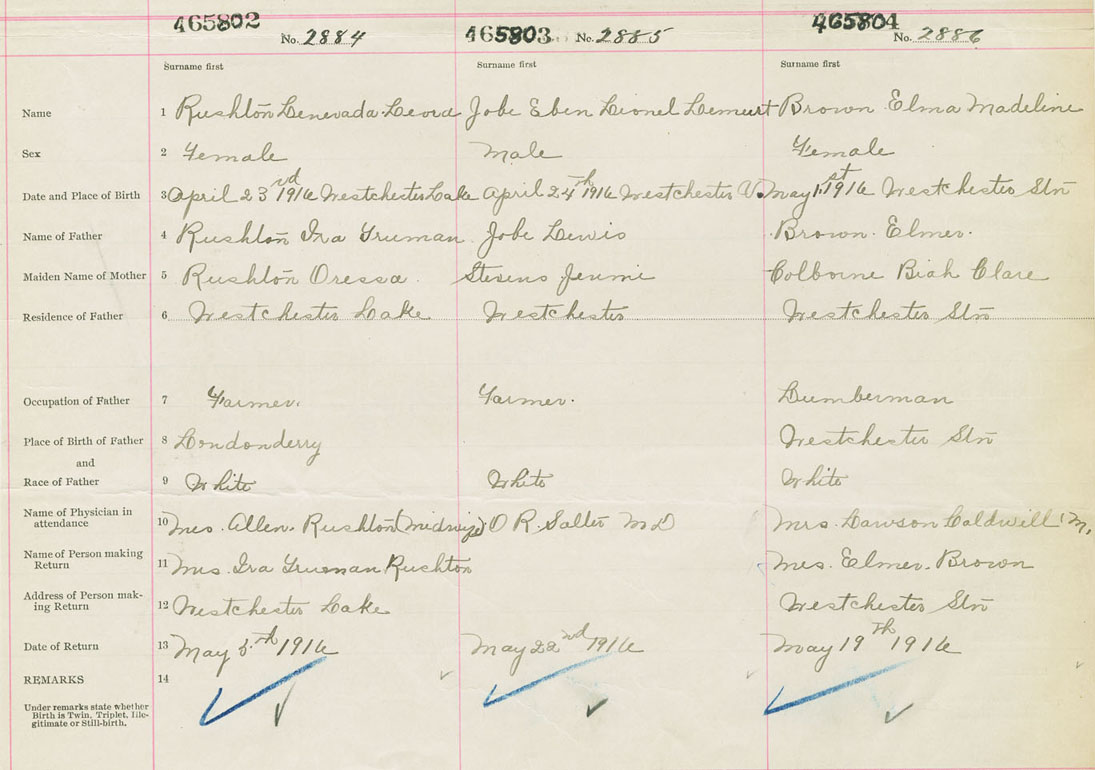 465802 No. 2884 465803 No. 2885 465804 No. 2886
Surname first Surname first Surname first
Name 1 Rushton Lenevada Leora Jobe Eben Lionel Brown Elma Madeline
Sex 2 Female Male Female
Date and Place of Birth 3 April 23rd 1916 Westchester Lake April 24th 1916 Westchester May 1st 1916 Westchester Stn
Name of Father 4 Rushton Ira Truman Jobe Lewis Brown Elmer
Maiden Name of Mother 5 Rushton Oressa Stevens Jennie Colborne Clare
Residence of Father 6 Westchester Lake Westchester Westchester Stn
Occupation of Father 7 Farmer. Farmer. Lumberman
Place of Birth of Father 8 Londonderry Westchester Stn
and
Race of Father 9 White White White
Name of Physician in
attendance 10 Mrs. Allen Rushton (Midwife) O R. Salter MD Mrs. Lawson Caldwell
Name of Person making
Return 11 Mrs. Ira Truman Rushton Mrs. Elmer Brown
Address of Person mak-
ing Return 12 Westchester Lake Westchester Stn
Date of Return 13 May 5th 1916 May 22nd 1916 May 19th 1916
REMARKS 14
Under remarks state whether
Birth is Twin, Triplet, Ille-
gitimate or Still-birth.